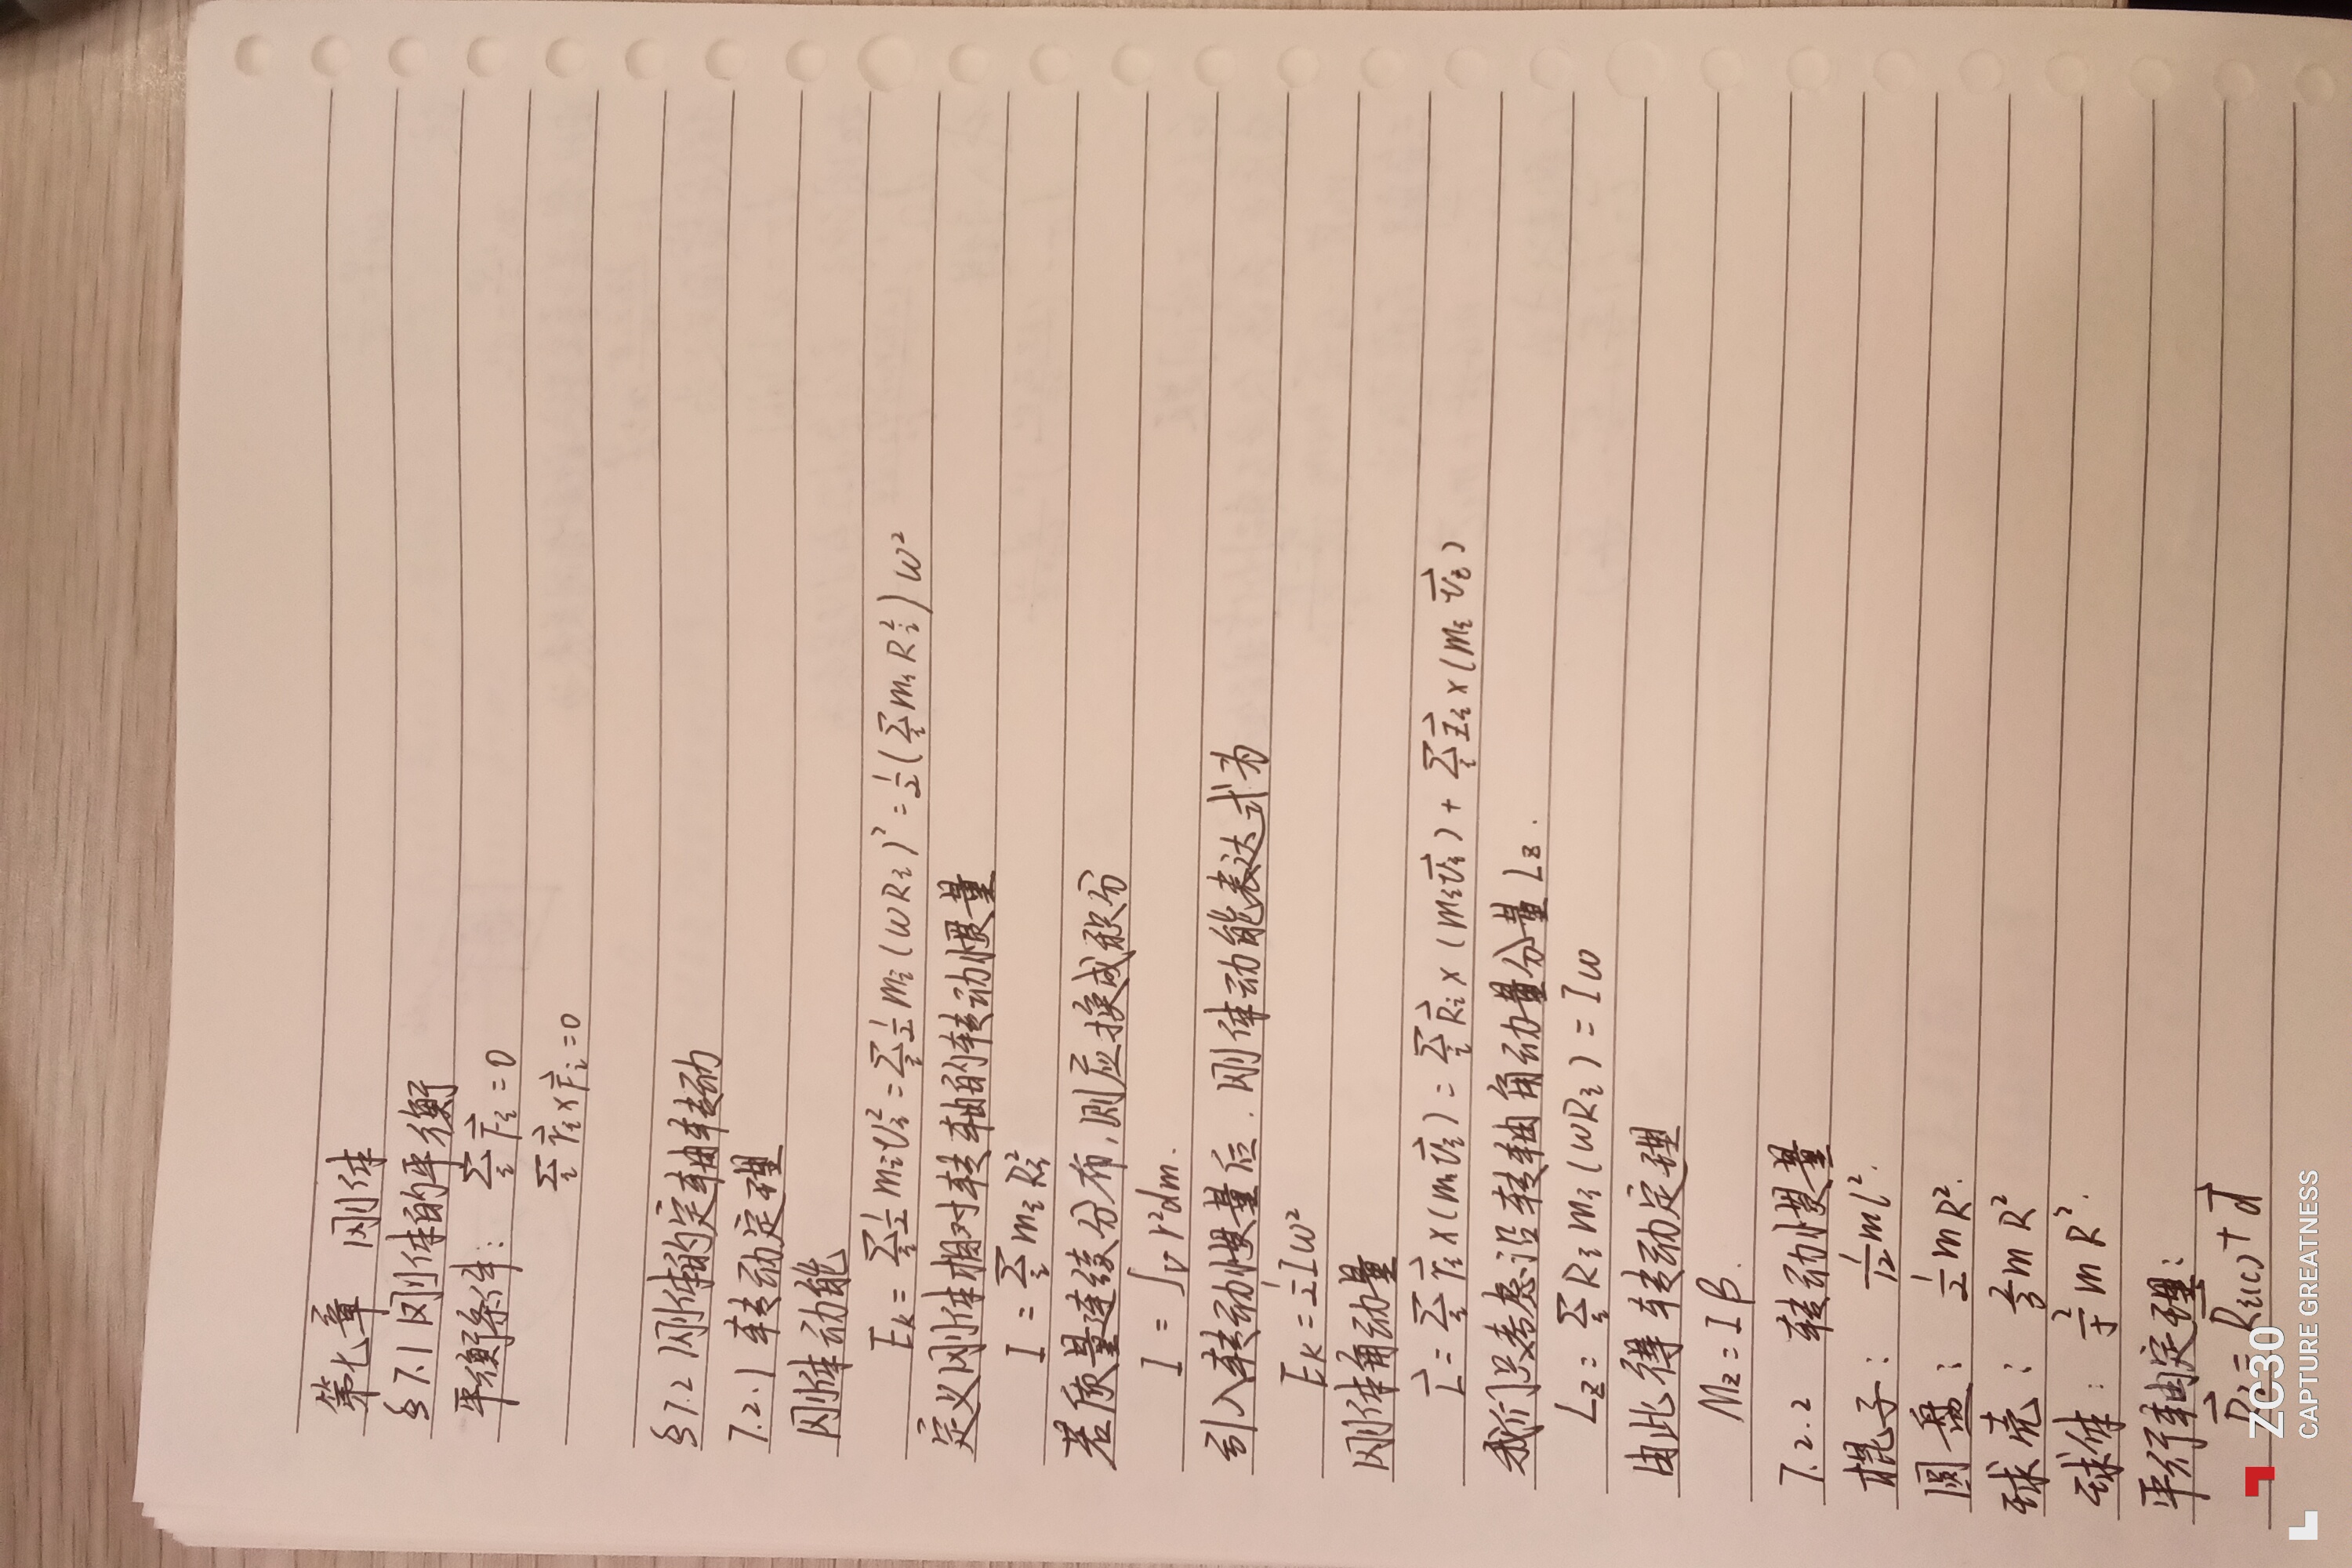 第七章 刚体
§7.1 刚体的平衡
平衡条件: Σᵢ F⃗ᵢ = 0
Σᵢ r⃗ᵢ × F⃗ᵢ = 0
§7.2 刚体的定轴转动
7.2.1 转动定理
刚体动能
Eₖ = Σᵢ ½ mᵢvᵢ² = Σᵢ ½ mᵢ(ωRᵢ)² = ½(Σᵢ mᵢRᵢ²)ω²
定义刚体相对转轴的转动惯量
I = Σᵢ mᵢRᵢ²
若质量连续分布,则应换成积分
I = ∫ᵥ r²dm.
引入转动惯量后.刚体动能表达式为
Eₖ = ½Iω²
刚体角动量
L⃗ = Σᵢ r⃗ᵢ×(mᵢv⃗ᵢ) = Σᵢ R⃗ᵢ×(mᵢv⃗ᵢ) + Σᵢ z⃗ᵢ×(mᵢv⃗ᵢ)
我们只考虑沿转轴角动量分量Lz.
Lz = Σᵢ Rᵢmᵢ(ωRᵢ) = Iω
由此得转动定理
Mz = Iβ.
7.2.2 转动惯量
棍子: 1/12 ml².
圆盘: ½ mR².
球壳: ⅔ mR²
球体: ⅖ mR².
平行轴定理:
R⃗ᵢ = R⃗ᵢ(c) + d⃗
ZC30
CAPTURE GREATNESS